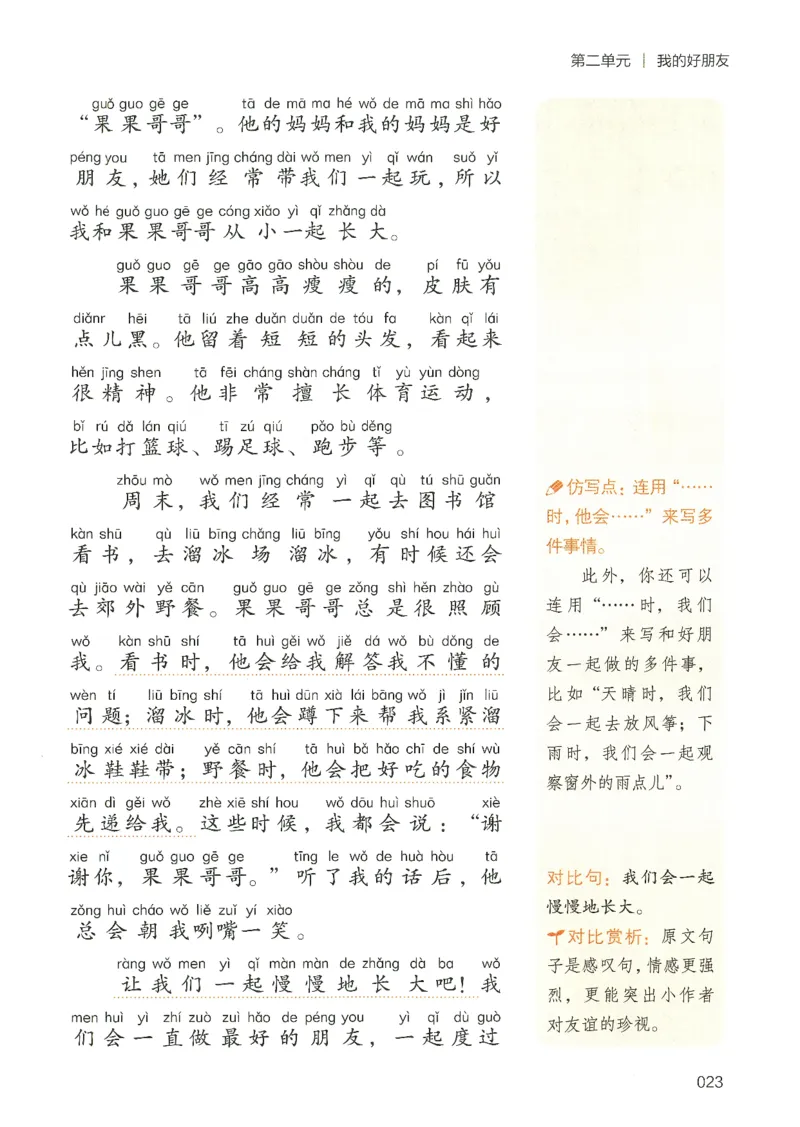 第二单元 | 我的好朋友
guǒ guo gē ge tā de mā ma hé wǒ de mā ma shì hǎo
“果果哥哥”。他的妈妈和我的妈妈是好
péng you tā men jīng cháng dài wǒ men yì qǐ wán suǒ yǐ
朋友,她们经常带我们一起玩,所以
wǒ hé guǒ guo gē ge cóng xiǎo yì qǐ zhǎng dà
我和果果哥哥从小一起长大。
guǒ guo gē ge gāo gāo shòu shòu de pí fū yǒu
果果哥哥高高瘦瘦的,皮肤有
diǎnr hēi tā liú zhe duǎn duǎn de tóu fa kàn qǐ lái
点儿黑。他留着短短的头发,看起来
hěn jīng shen tā fēi cháng shàn cháng tǐ yù yùn dòng
很精神。他非常擅长体育运动,
bǐ rú dǎ lán qiú tī zú qiú pǎo bù děng
比如打篮球、踢足球、跑步等。
zhōu mò wǒ men jīng cháng yì qǐ qù tú shū guǎn
周末,我们经常一起去图书馆
kàn shū qù liū bīng chǎng liū bīng yǒu shí hou hái huì
看书,去溜冰场溜冰,有时候还会
qù jiāo wài yě cān guǒ guo gē ge zǒng shì hěn zhào gù
去郊外野餐。果果哥哥总是很照顾
wǒ kàn shū shí tā huì gěi wǒ jiě dá wǒ bù dǒng de
我。看书时,他会给我解答我不懂的
wèn tí liū bīng shí tā huì dūn xià lái bāng wǒ jì jǐn liū
问题;溜冰时,他会蹲下来帮我系紧溜
bīng xié xié dài yě cān shí tā huì bǎ hǎo chī de shí wù
冰鞋鞋带;野餐时,他会把好吃的食物
xiān dì gěi wǒ zhè xiē shí hou wǒ dōu huì shuō xiè
先递给我。这些时候,我都会说:“谢
xie nǐ guǒ guo gē ge tīng le wǒ de huà hòu tā
谢你,果果哥哥。”听了我的话后,他
zǒng huì cháo wǒ liě zuǐ yí xiào
总会朝我咧嘴一笑。
ràng wǒ men yì qǐ màn màn de zhǎng dà ba wǒ
让我们一起慢慢地长大吧!我
men huì yì zhí zuò zuì hǎo de péng you yì qǐ dù guò
们会一直做最好的朋友,一起度过
仿写点:连用“……
时,他会……”来写多
件事情。
此外,你还可以
连用“……时,我们
会……”来写和好朋
友一起做的多件事,
比如“天晴时,我们
会一起去放风筝;下
雨时,我们会一起观
察窗外的雨点儿”。
对比句:我们会一起
慢慢地长大。
对比赏析:原文句
子是感叹句,情感更强
烈,更能突出小作者
对友谊的珍视。
023